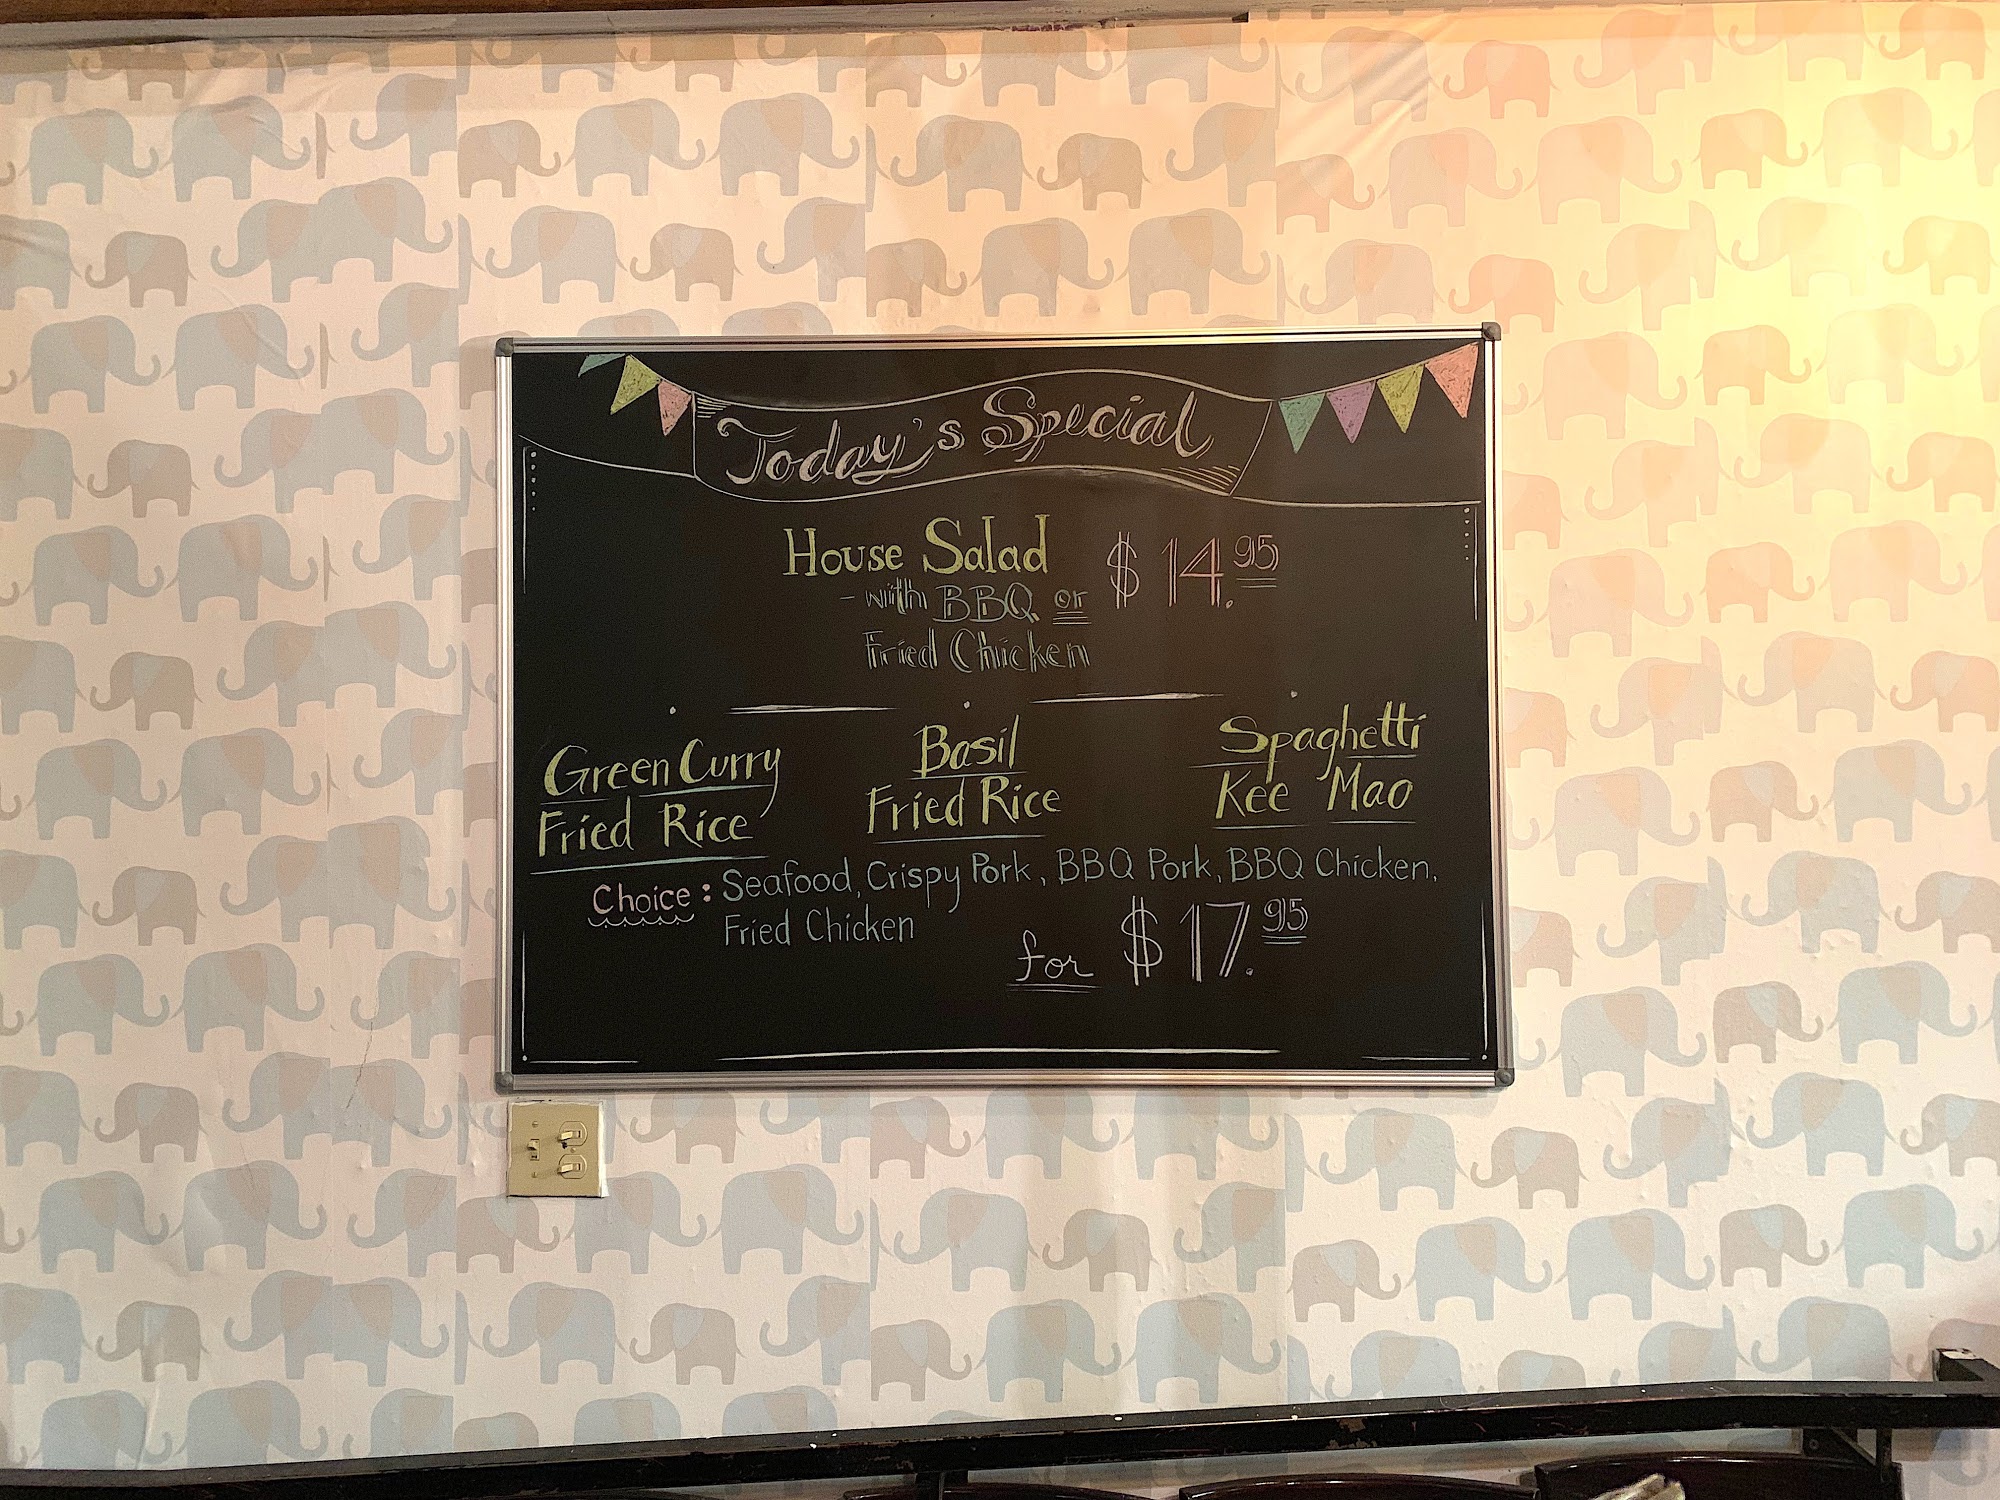 Today's Special
House Salad $14.95
- with BBQ or
Fried Chicken
Green Curry
Fried Rice
Basil
Fried Rice
Spaghetti
Kee Mao
Choice: Seafood, Crispy Pork, BBQ Pork, BBQ Chicken,
Fried Chicken
for $17.95